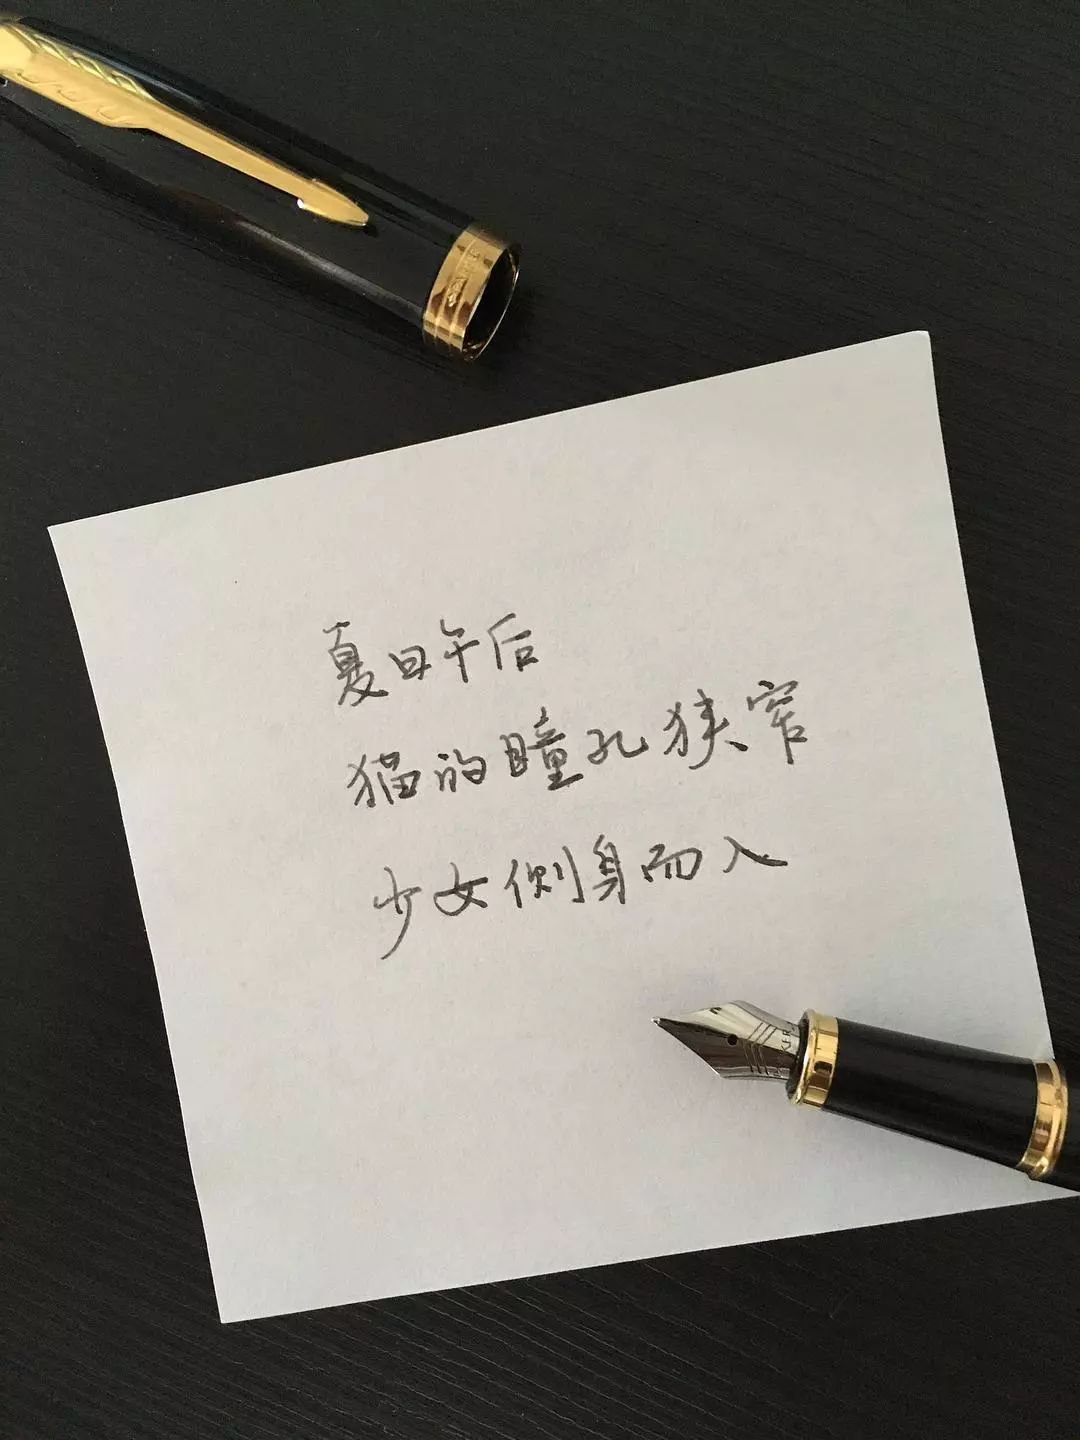 夏日午后
猫的瞳孔狭窄
少女侧身而入